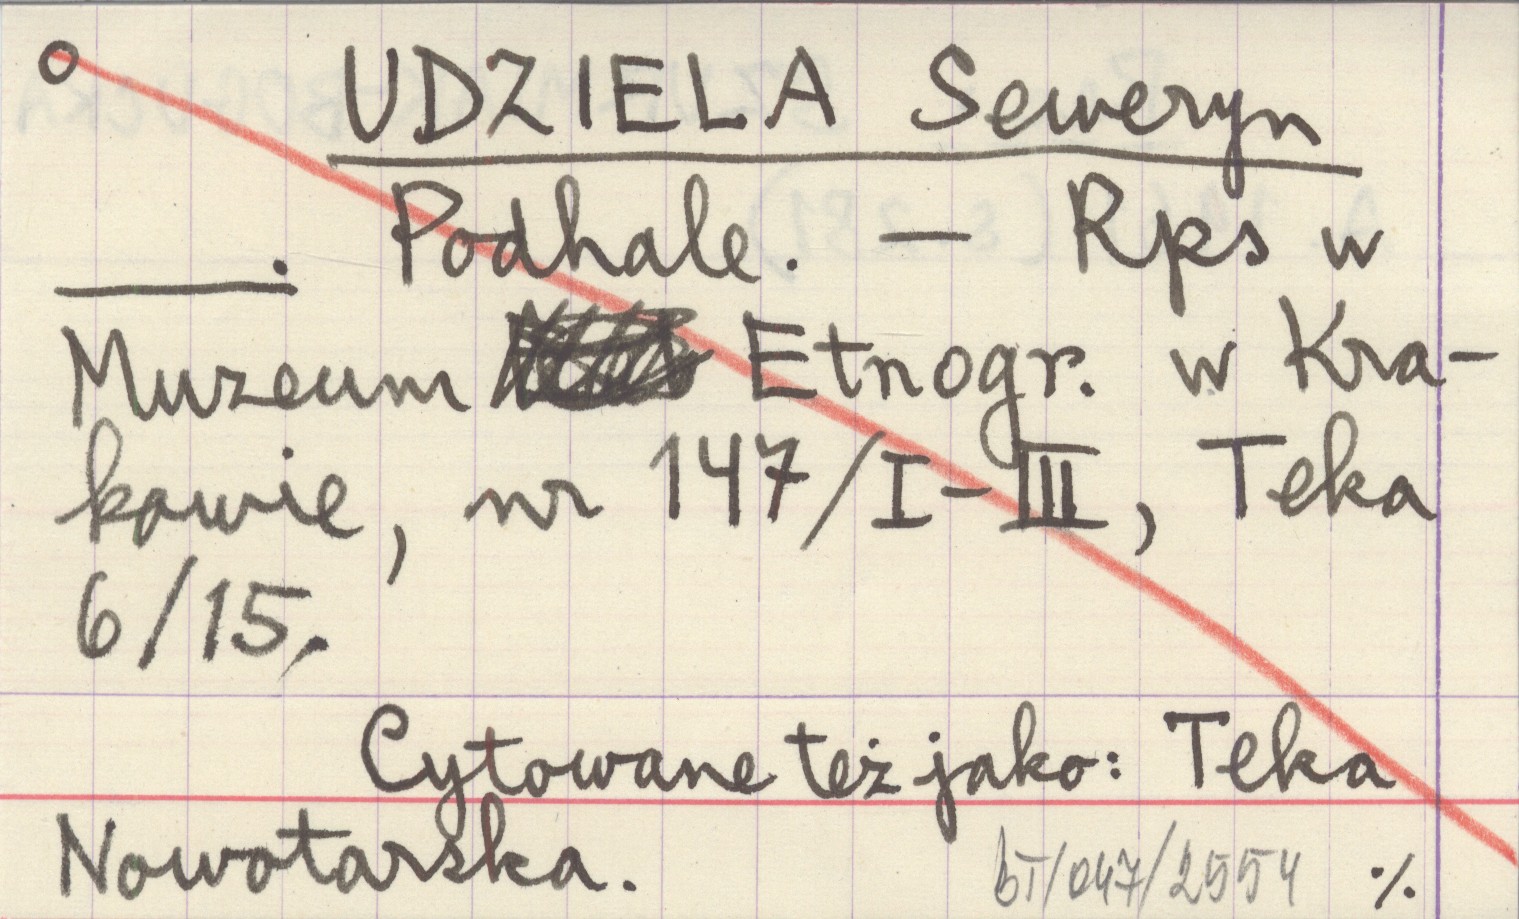 UDZIELA Seweryn
Podhale. — Rps w
Muzeum Etnogr. w Kra-
kowie, nr 147/I-III, Teka
6/15.
Cytowane też jako: Teka
Nowotarska.
BI/047/2554 ·/.